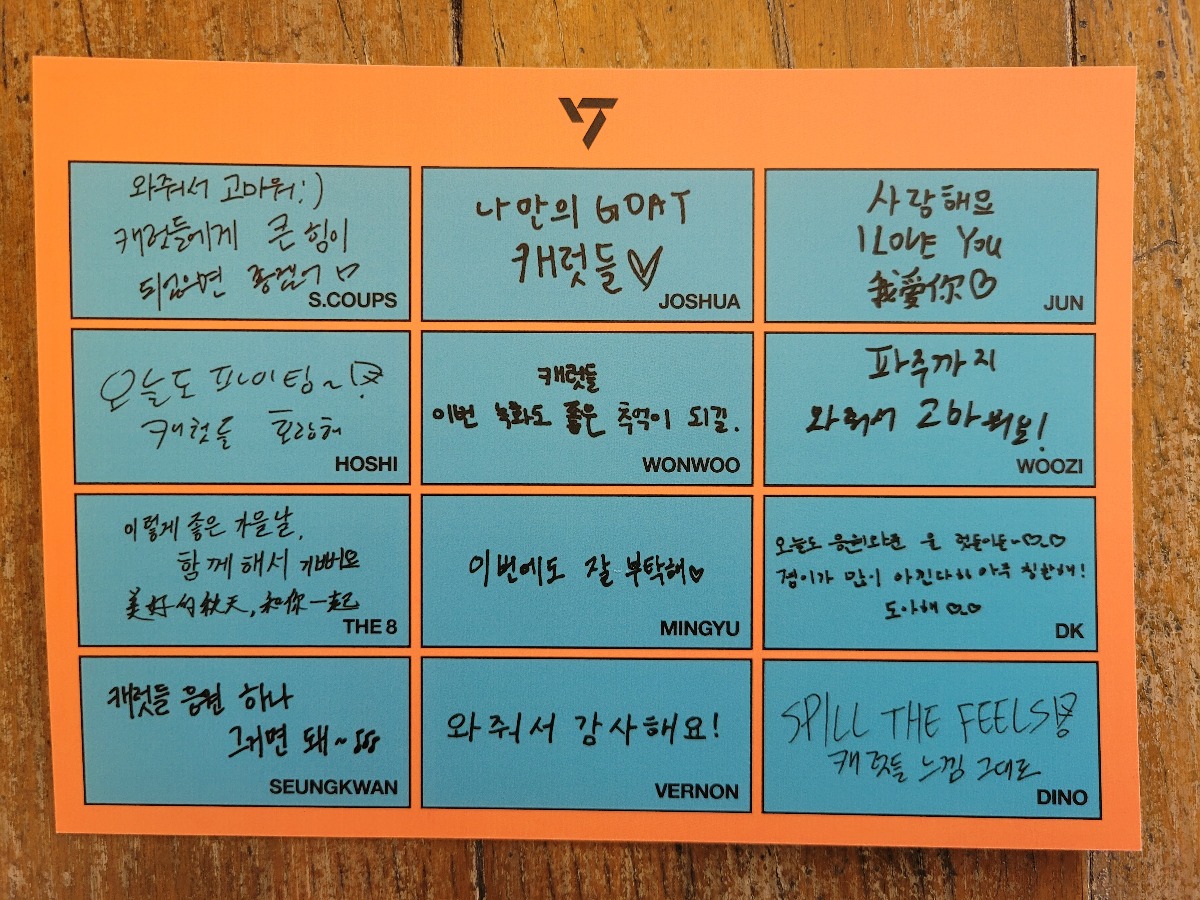 와줘서 고마워:)
캐럿들에게 큰 힘이
되었으면 좋겠어
S.COUPS
나만의 GOAT
캐럿들♡
JOSHUA
사랑해요
I LOVE YOU
我愛你♡
JUN
오늘도 파이팅~
캐럿들 호랑해
HOSHI
캐럿들
이번 녹화도 좋은 추억이 되길.
WONWOO
파주까지
와줘서 고마워요!
WOOZI
이렇게 좋은 가을날,
함께해서 기뻐요
美好的秋天,和你一起
THE 8
이번에도 잘 부탁해♡
MINGYU
오늘도 응원와준 울
많이 아낀다 아주 칭찬해!
도아해
DK
캐럿들 응원 하나
그거면 돼~
SEUNGKWAN
와줘서 감사해요!
VERNON
SPILL THE FEELS
캐럿들 느낌 그대로
DINO